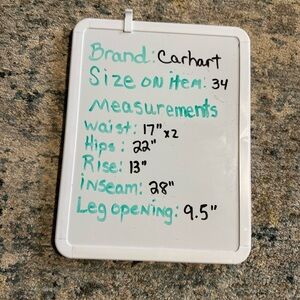 Brand: Carhart
Size on item: 34
Measurements
Waist: 17" x2
Hips: 22"
Rise: 13"
inseam: 28"
Leg opening: 9.5"